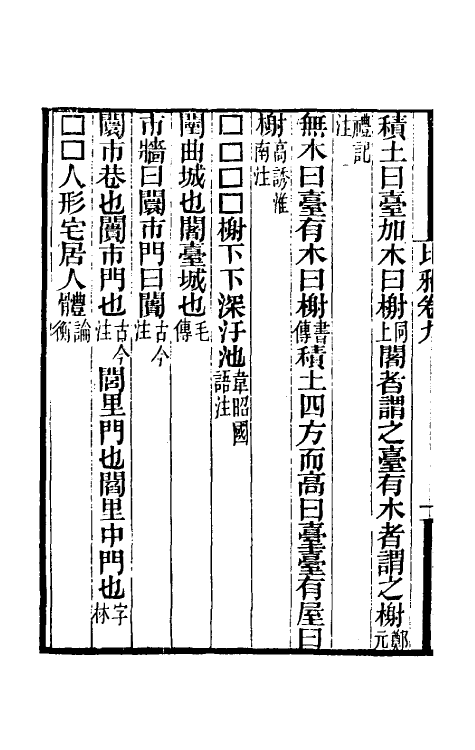 比雅卷九
積土曰臺加木曰榭同上闍者謂之臺有木者謂之榭鄭元
禮記注
無木曰臺有木曰榭書傳積土四方而高曰臺臺有屋曰
榭高誘淮南注
□□□□榭下下深汙池韋昭國語注
闉曲城也闍臺城也毛傳
市牆曰闤市門曰闠古今注
闤市巷也闠市門也古今注閭里門也閻里中門也字林
□□人形宅居人體論衡